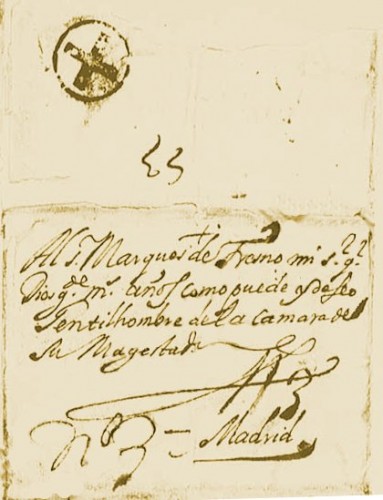 Al S.r Marques de Fresno mi S.r q.
Dios g.de m.s años como puede y deseo
Jentilhombre de la camara de
Su Magestad
Madrid